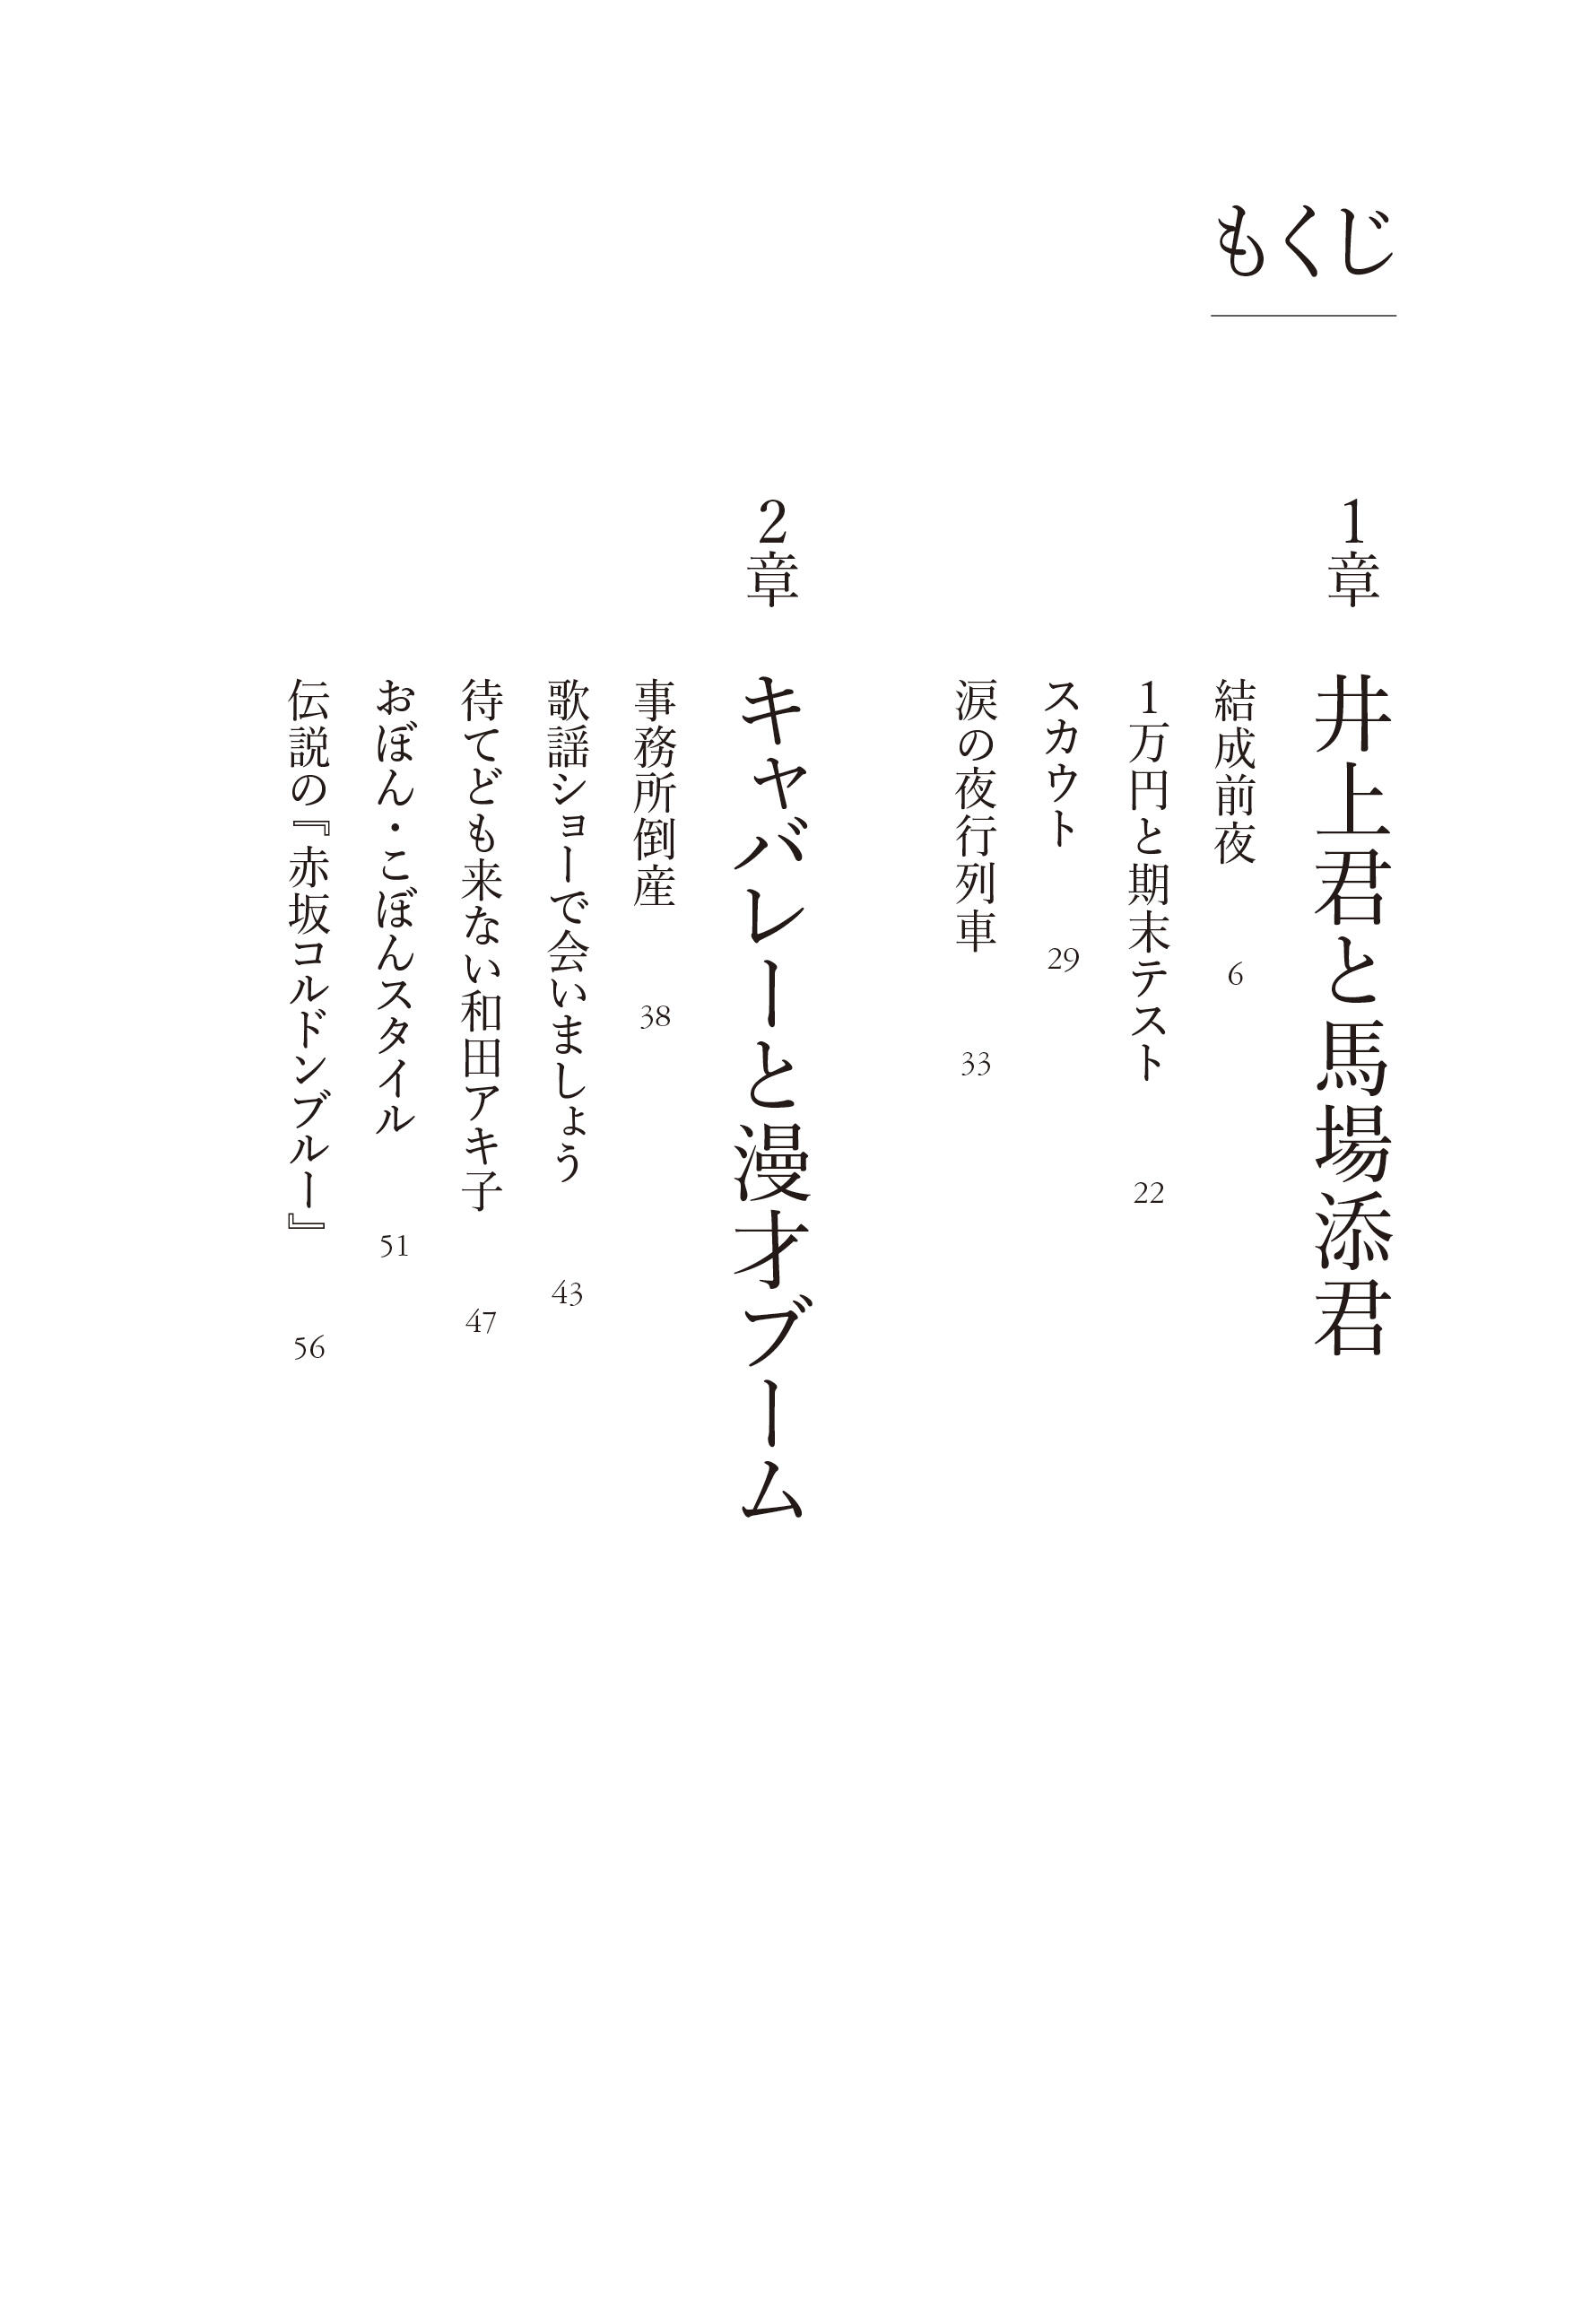 もくじ
1章 井上君と馬場添君
結成前夜 6
1万円と期末テスト 22
スカウト 29
涙の夜行列車 33
2章 キャバレーと漫才ブーム
事務所倒産 38
歌謡ショーで会いましょう 43
待てども来ない和田アキ子 47
おぼん・こぼんスタイル 51
伝説の『赤坂コルドンブルー』 56